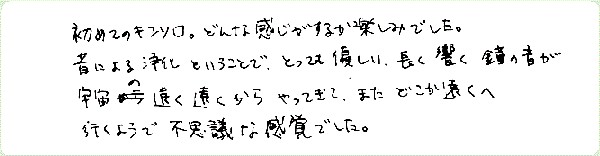 初めてのキンソロ。どんな感じがするか楽しみでした。
音による浄化ということで、とっても優しい、長く響く鐘の音が
宇宙の遠く遠くからやってきて、またどこか遠くへ
行くようで不思議な感覚でした。